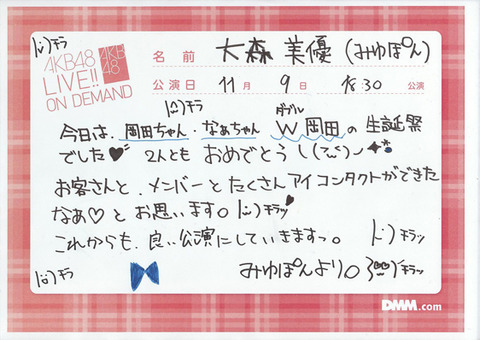 |ω・)チラ
AKB48
LIVE!!
ON DEMAND
AKB
48
名前 大森美優(みゆぽん)
公演日 11月 9日 18:30 公演
|ω・)チラ
ダブル
今日は、岡田ちゃん・なぁちゃん W岡田の生誕祭
でした♥ 2人とも おめでとう
お客さんと、メンバーとたくさんアイコンタクトができた
なぁ♡とお思います。|ω・)チラッ
これからも、良い公演にしていきますっ。 |ω・)チラッ
|ω・)チラ
みゆぽんより。 チラッ
DMM.com